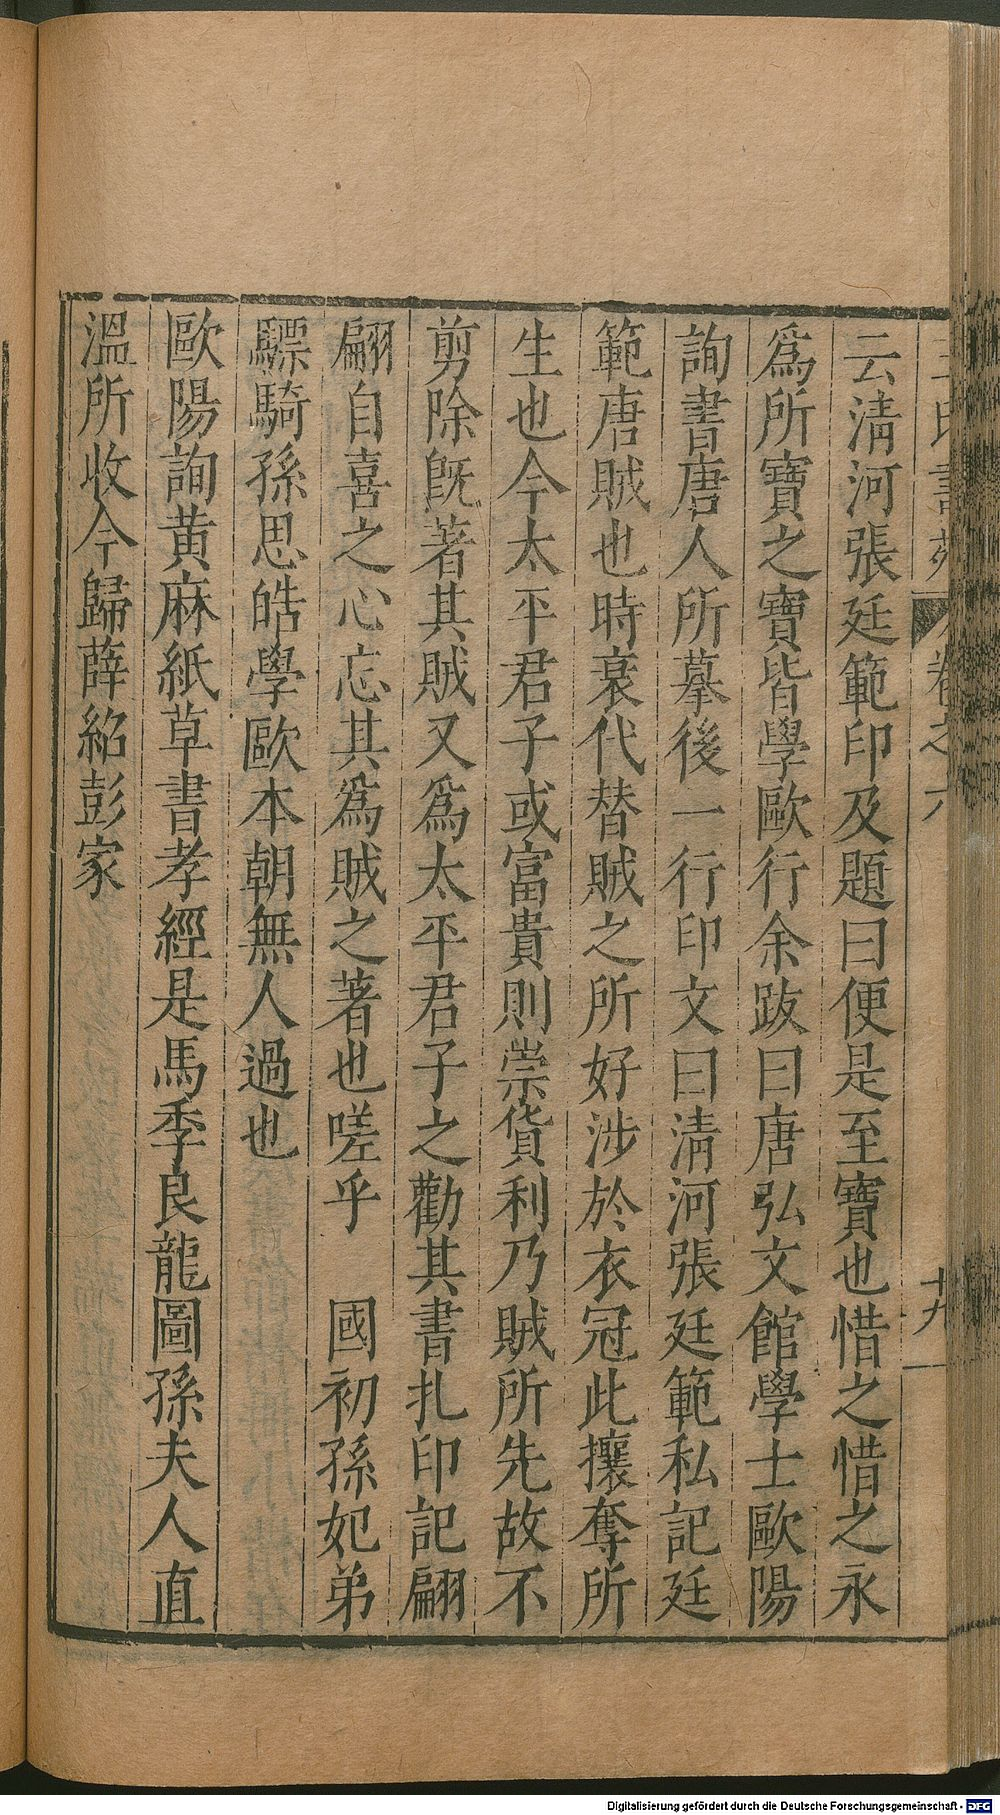 王氏書苑 卷之六 十九
云淸河張廷範印及題曰便是至寶也惜之惜之永
爲所寶之寶皆學歐行余跋曰唐弘文館學士歐陽
詢書唐人所摹後一行印文曰淸河張廷範私記廷
範唐賊也時衰代替賊之所好涉於衣冠此攘奪所
生也今太平君子或富貴則崇貨利乃賊所先故不
剪除旣著其賊又爲太平君子之勸其書扎印記翩
翩自喜之心忘其爲賊之著也嗟乎 國初孫妃弟
驃騎孫思皓學歐本朝無人過也
歐陽詢黃麻紙草書孝經是馬季良龍圖孫夫人直
溫所收今歸薛紹彭家
Digitalisierung gefördert durch die Deutsche Forschungsgemeinschaft - DFG